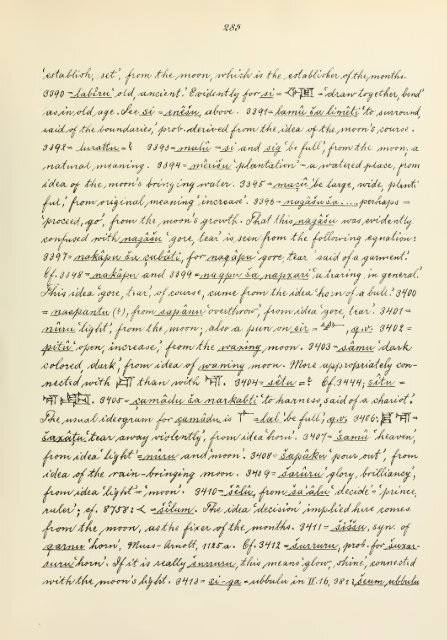 285
'establish, set', from the moon, which is the establisher of the months.
3390 = labêru 'old, ancient.' Evidently for si = 'draw together, bend'
as in old age. See si = enêšu, above. 3391 = lamû ša limêti 'to surround
said of the boundaries,' prob. derived from the idea of the moon's course.
3392 = lurattu = ? 3393 = mulû = si and sig 'be full', from the moon, a
natural meaning. 3394 = mêrišu 'plantation' = a watered place, from
idea of the moon's bringing water. 3395 = mazû 'be large, wide, plenti
ful,' from original meaning 'increase'. 3396 = nagâšu ša .... perhaps =
'proceed, go', from the moon's growth. That this nagâšu was evidently
confused with nagâšu 'gore, tear' is seen from the following equation:
3397 = nakâpu ša zubâti, for nagâpu 'gore, tear' said of a garment.'
Cf. 3398 = nakâpu and 3399 = nagpu ša napxari 'a haring in general.'
This idea 'gore, tear', of course, came from the idea 'horn of a bull.' 3400
= naspantu (?), from sapânu 'overthrow', from idea 'gore, tear.' 3401 =
nûru 'light', from the moon; also a pun on sir = q.v. 3402 =
pîtû 'open, increase,' from the waxing moon. 3403 = sâmu 'dark
colored, dark', from idea of waning moon. More appropriately con-
nected with than with 3404 = sêtu = ? Cf. 3444, sîtu =
3405 = çamâdu ša narkabti 'to harness, said of a chariot.'
The usual ideogram for çamâdu is = lal 'be full', q.v. 3406 =
šaxâtu 'tear away violently', from idea 'horn'. 3407 = šamû 'heaven,'
from idea 'light' = nûru and 'moon'. 3408 = šapâku 'pour out', from
idea of the rain-bringing moon. 3409 = šarûru 'glory, brilliancy,'
from idea 'light' = 'moon'. 3410 = šêlû, from ša'âlu 'decide' = 'prince,
ruler'; cf. 8758: = šîtum. The idea 'decision' implied here comes
from the moon, as the fixer of the months. 3411 = šiššu, syn. of
qarnu 'horn', Muss-Arnolt, 1125a. Cf. 3412 = šurruru, prob. for šuxar-
ruru 'horn'. If it is really šurruru, this means 'glow, shine, connected
with the moon's light. 3413 = si-ga = ubbulu in II. 16, 38: šeum ubbulu